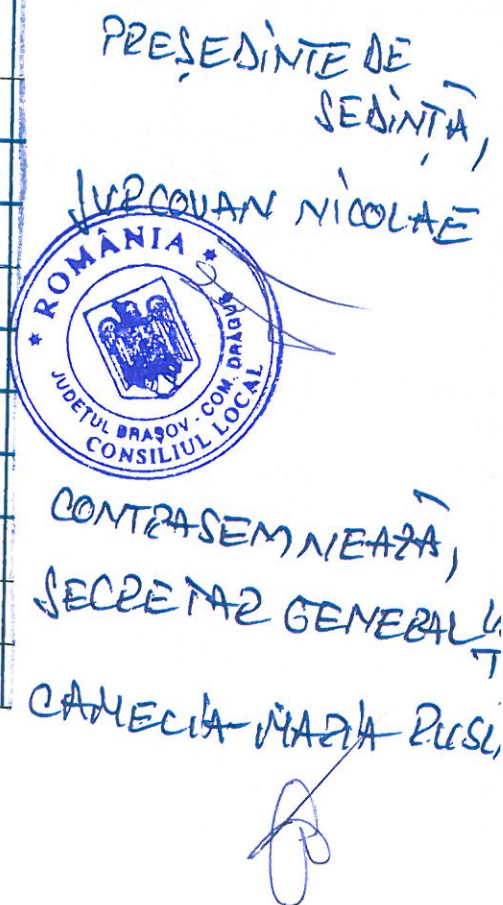 PREȘEDINTE DE
SEDINȚĂ,
JURCOVAN NICOLAE
* ROMÂNIA *
JUDEȚUL BRAȘOV - COM. DRĂGUȘ
CONSILIUL LOCAL
CONTRASEMNEAZĂ,
SECRETAR GENERAL
CAMELIA-MARIA